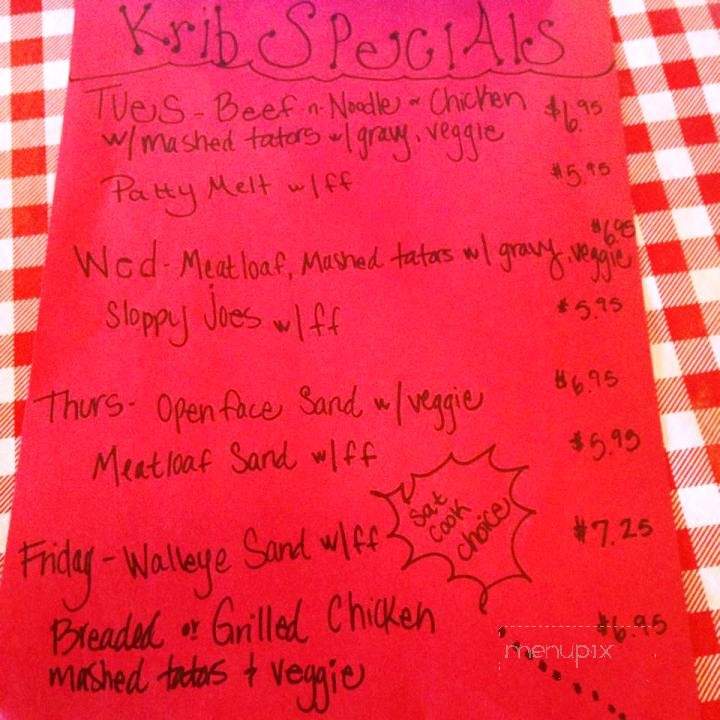 Krib Specials
Tues - Beef-n-Noodle or Chicken $6.95
w/ mashed tators w/ gravy, veggie
Patty Melt w/ff $5.95
$6.95
Wed - Meatloaf, Mashed tators w/ gravy, veggie
Sloppy Joes w/ff $5.95
Thurs - Openface Sand w/veggie $6.95
Meatloaf Sand w/ff $5.95
Sat
Cook
choice
Friday - Walleye Sand w/ff $7.25
Breaded or Grilled Chicken $6.95
mashed tatos + veggie
menupix